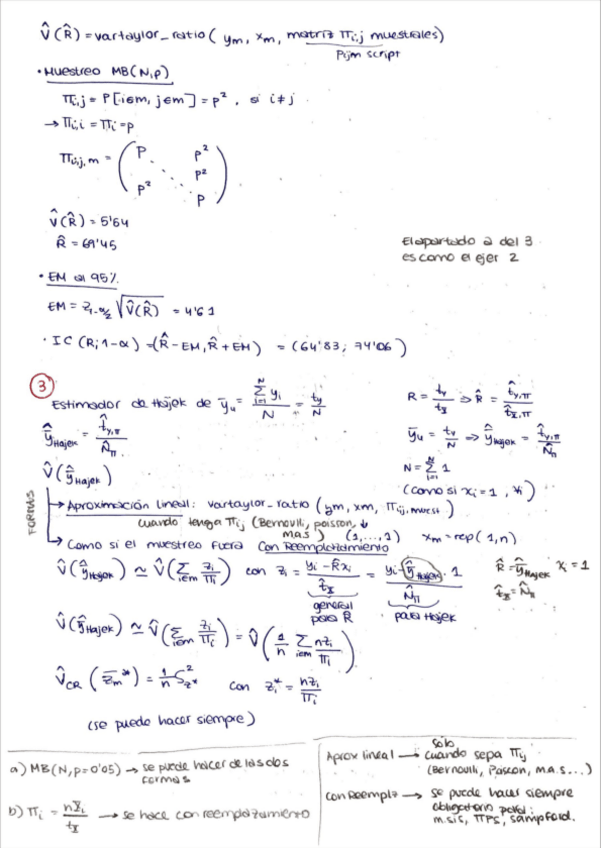 V̂(R̂) = vartaylor_ratio( ym, xm, matriz Πi,j muestrales)
Pijm script
• Muestreo MB(N,p)
Πi,j = P[i∈m, j∈m] = p², si i≠j
→ Πi,i = Πi = p
Πi,j,m = ( p p² p² p² p )
V̂(R̂) = 5'64
R̂ = 69'45
El apartado a del 3
es como el ejer 2
• EM al 95%
EM = Z1-α/2 √V̂(R̂) = 4'61
• IC (R; 1-α) = (R̂ - EM, R̂ + EM) = (64'83; 74'06)
③
Estimador de Hájek de ȳu = Σ(i=1..N) yi / N = ty / N
R = ty/tx ⇒ R̂ = t̂y,π / t̂x,π
ŷHájek = t̂y,π / N̂π
ȳu = ty/N ⇒ ŷHájek = t̂y,π / N̂π
N = Σ(i=1..N) 1
(como si xi = 1, ∀i)
V̂(ŷHájek)
FORMAS
→ Aproximación lineal: vartaylor_ratio (ym, xm, Πij,muest)
cuando tenga Πij (Bernoulli, poisson, m.a.s) (1,...,1) xm = rep(1,n)
→ Como si el muestreo fuera Con Reemplazamiento
V̂(ŷHájek) ≃ V̂(Σ(i∈m) zi/Πi) con zi = (yi - R̂xi)/t̂x = (yi - ŷHájek · 1)/N̂π
R̂ = ŷHájek xi = 1
t̂x = N̂π
general para R
para Hájek
V̂(ŷHájek) ≃ V̂(Σ(i∈m) zi/Πi) = V̂(1/n Σ(i∈m) nzi/Πi)
V̂CR (z̄m*) = 1/n S²z* con zi* = nzi/Πi
(se puede hacer siempre)
a) MB(N, p=0'05) → se puede hacer de las dos
formas
b) Πi = nXi/tx → se hace con reemplazamiento
Aprox lineal → sólo cuando sepa Πij
(Bernoulli, Poisson, m.a.s...)
Con Reempl → se puede hacer siempre
obligatorio para:
m.sis, πPS, sampford.